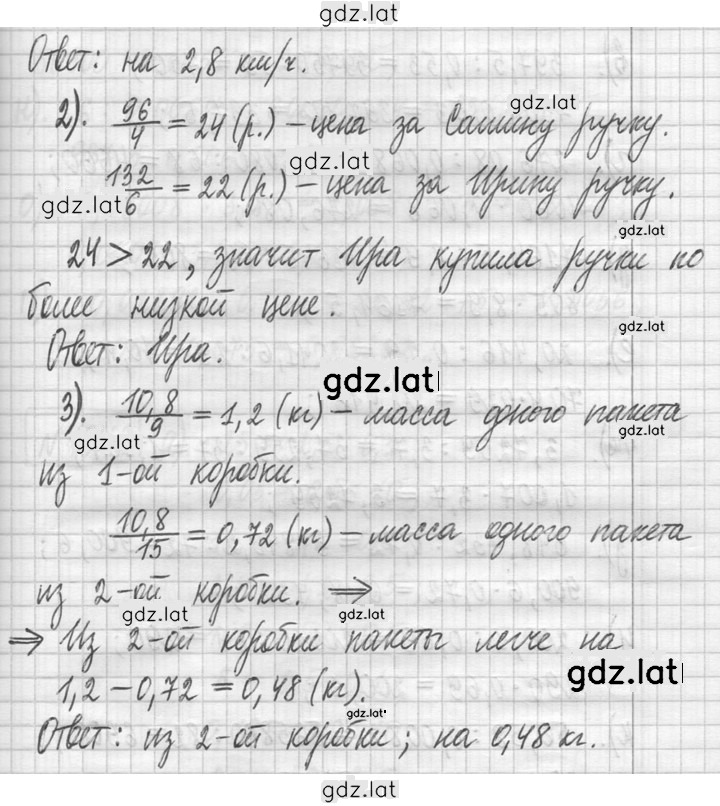 gdz.lat
Ответ: на 2,8 км/ч.
gdz.lat
2). 96/4 = 24 (р.) – цена за Сашину ручку.
gdz.lat
132/6 = 22 (р.) – цена за Ирину ручку.
gdz.lat
gdz.lat
24 > 22, значит Ира купила ручки по
более низкой цене.
gdz.lat
Ответ: Ира.
gdz.lat
3). 10,8/9 = 1,2 (кг) – масса одного пакета
gdz.lat
gdz.lat
из 1-ой коробки.
10,8/15 = 0,72 (кг) – масса одного пакета
из 2-ой коробки. ⇒
gdz.lat
gdz.lat
⇒ Из 2-ой коробки пакеты легче на
gdz.lat
1,2 – 0,72 = 0,48 (кг).
gdz.lat
Ответ: из 2-ой коробки; на 0,48 кг.
gdz.lat